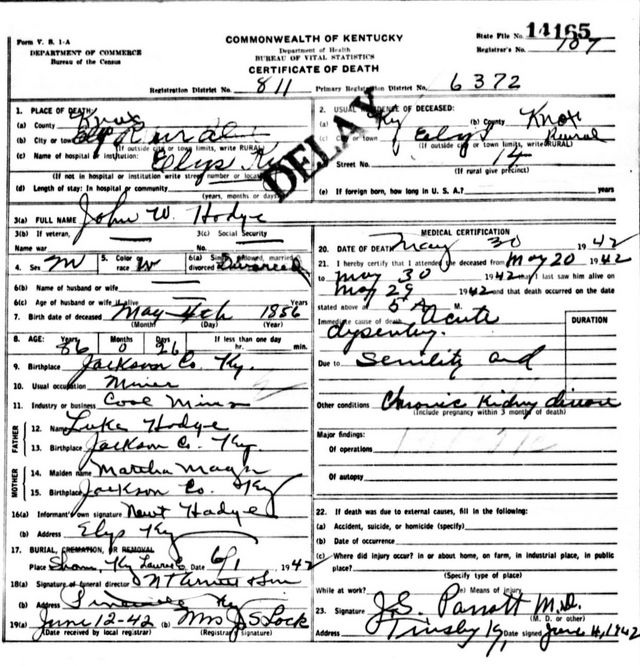 Form V. S. 1-A
DEPARTMENT OF COMMERCE
Bureau of the Census
COMMONWEALTH OF KENTUCKY
Department of Health
BUREAU OF VITAL STATISTICS
CERTIFICATE OF DEATH
State File No. 14165
Registrar's No. 107
Registration District No. 811 Primary Registration District No. 6372
DELAY
1. PLACE OF DEATH
(a) County Knox
(b) City or town Rural
(If outside city or town limits, write RURAL)
(c) Name of hospital or institution: Elys Ky
(If not in hospital or institution write street number or location)
(d) Length of stay: In hospital or community
(years, months or days)
2. USUAL RESIDENCE OF DECEASED:
(a) Ky (b) County Knox
(c) City or town Elys Rural
(If outside city or town limits, write RURAL)
Street No. 14
(If rural give precinct)
(e) If foreign born, how long in U. S. A.? years
3(a) FULL NAME John W. Hodge
3(b) If veteran, Name war
3(c) Social Security No.
4. Sex M 5. Color or race W 6(a) Single, widowed, married, divorced Divorced
6(b) Name of husband or wife
6(c) Age of husband or wife if alive Years
7. Birth date of deceased May 4th 1856
(Month) (Day) (Year)
8. AGE: Years Months Days If less than one day
86 0 26 hr. min.
9. Birthplace Jackson Co. Ky.
10. Usual occupation Miner
11. Industry or business Coal Mines
FATHER
12. Name Luke Hodge
13. Birthplace Jackson Co. Ky.
MOTHER
14. Maiden name Martha
15. Birthplace Jackson Co. Ky
16(a) Informant's own signature Newt Hodge
(b) Address Elys Ky
17. BURIAL, CREMATION, OR REMOVAL
Place Ky Laurel Date 6/1 1942
18(a) Signature of funeral director
(b) Address Pineville Ky
19(a) June 12-42 (b) Mrs J S Lock
(Date received by local registrar) (Registrar's signature)
MEDICAL CERTIFICATION
20. DATE OF DEATH May 30 1942
21. I hereby certify that I attended the deceased from May 20 1942
to May 30 1942 that I last saw him alive on
May 29 1942 and that death occurred on the date
stated above at 5 A M.
DURATION
Immediate cause of death Acute
dysentery
Due to Senility and
Other conditions Chronic Kidney disease
(Include pregnancy within 3 months of death)
Major findings:
Of operations
Of autopsy
22. If death was due to external causes, fill in the following:
(a) Accident, suicide, or homicide (specify)
(b) Date of occurrence
(c) Where did injury occur? In or about home, on farm, in industrial place, in public
place?
(Specify type of place)
While at work? (e) Means of injury
23. Signature J.S. Parrott M.D.
(M. D. or other)
Address Tinsley Ky Date signed June 4, 1942